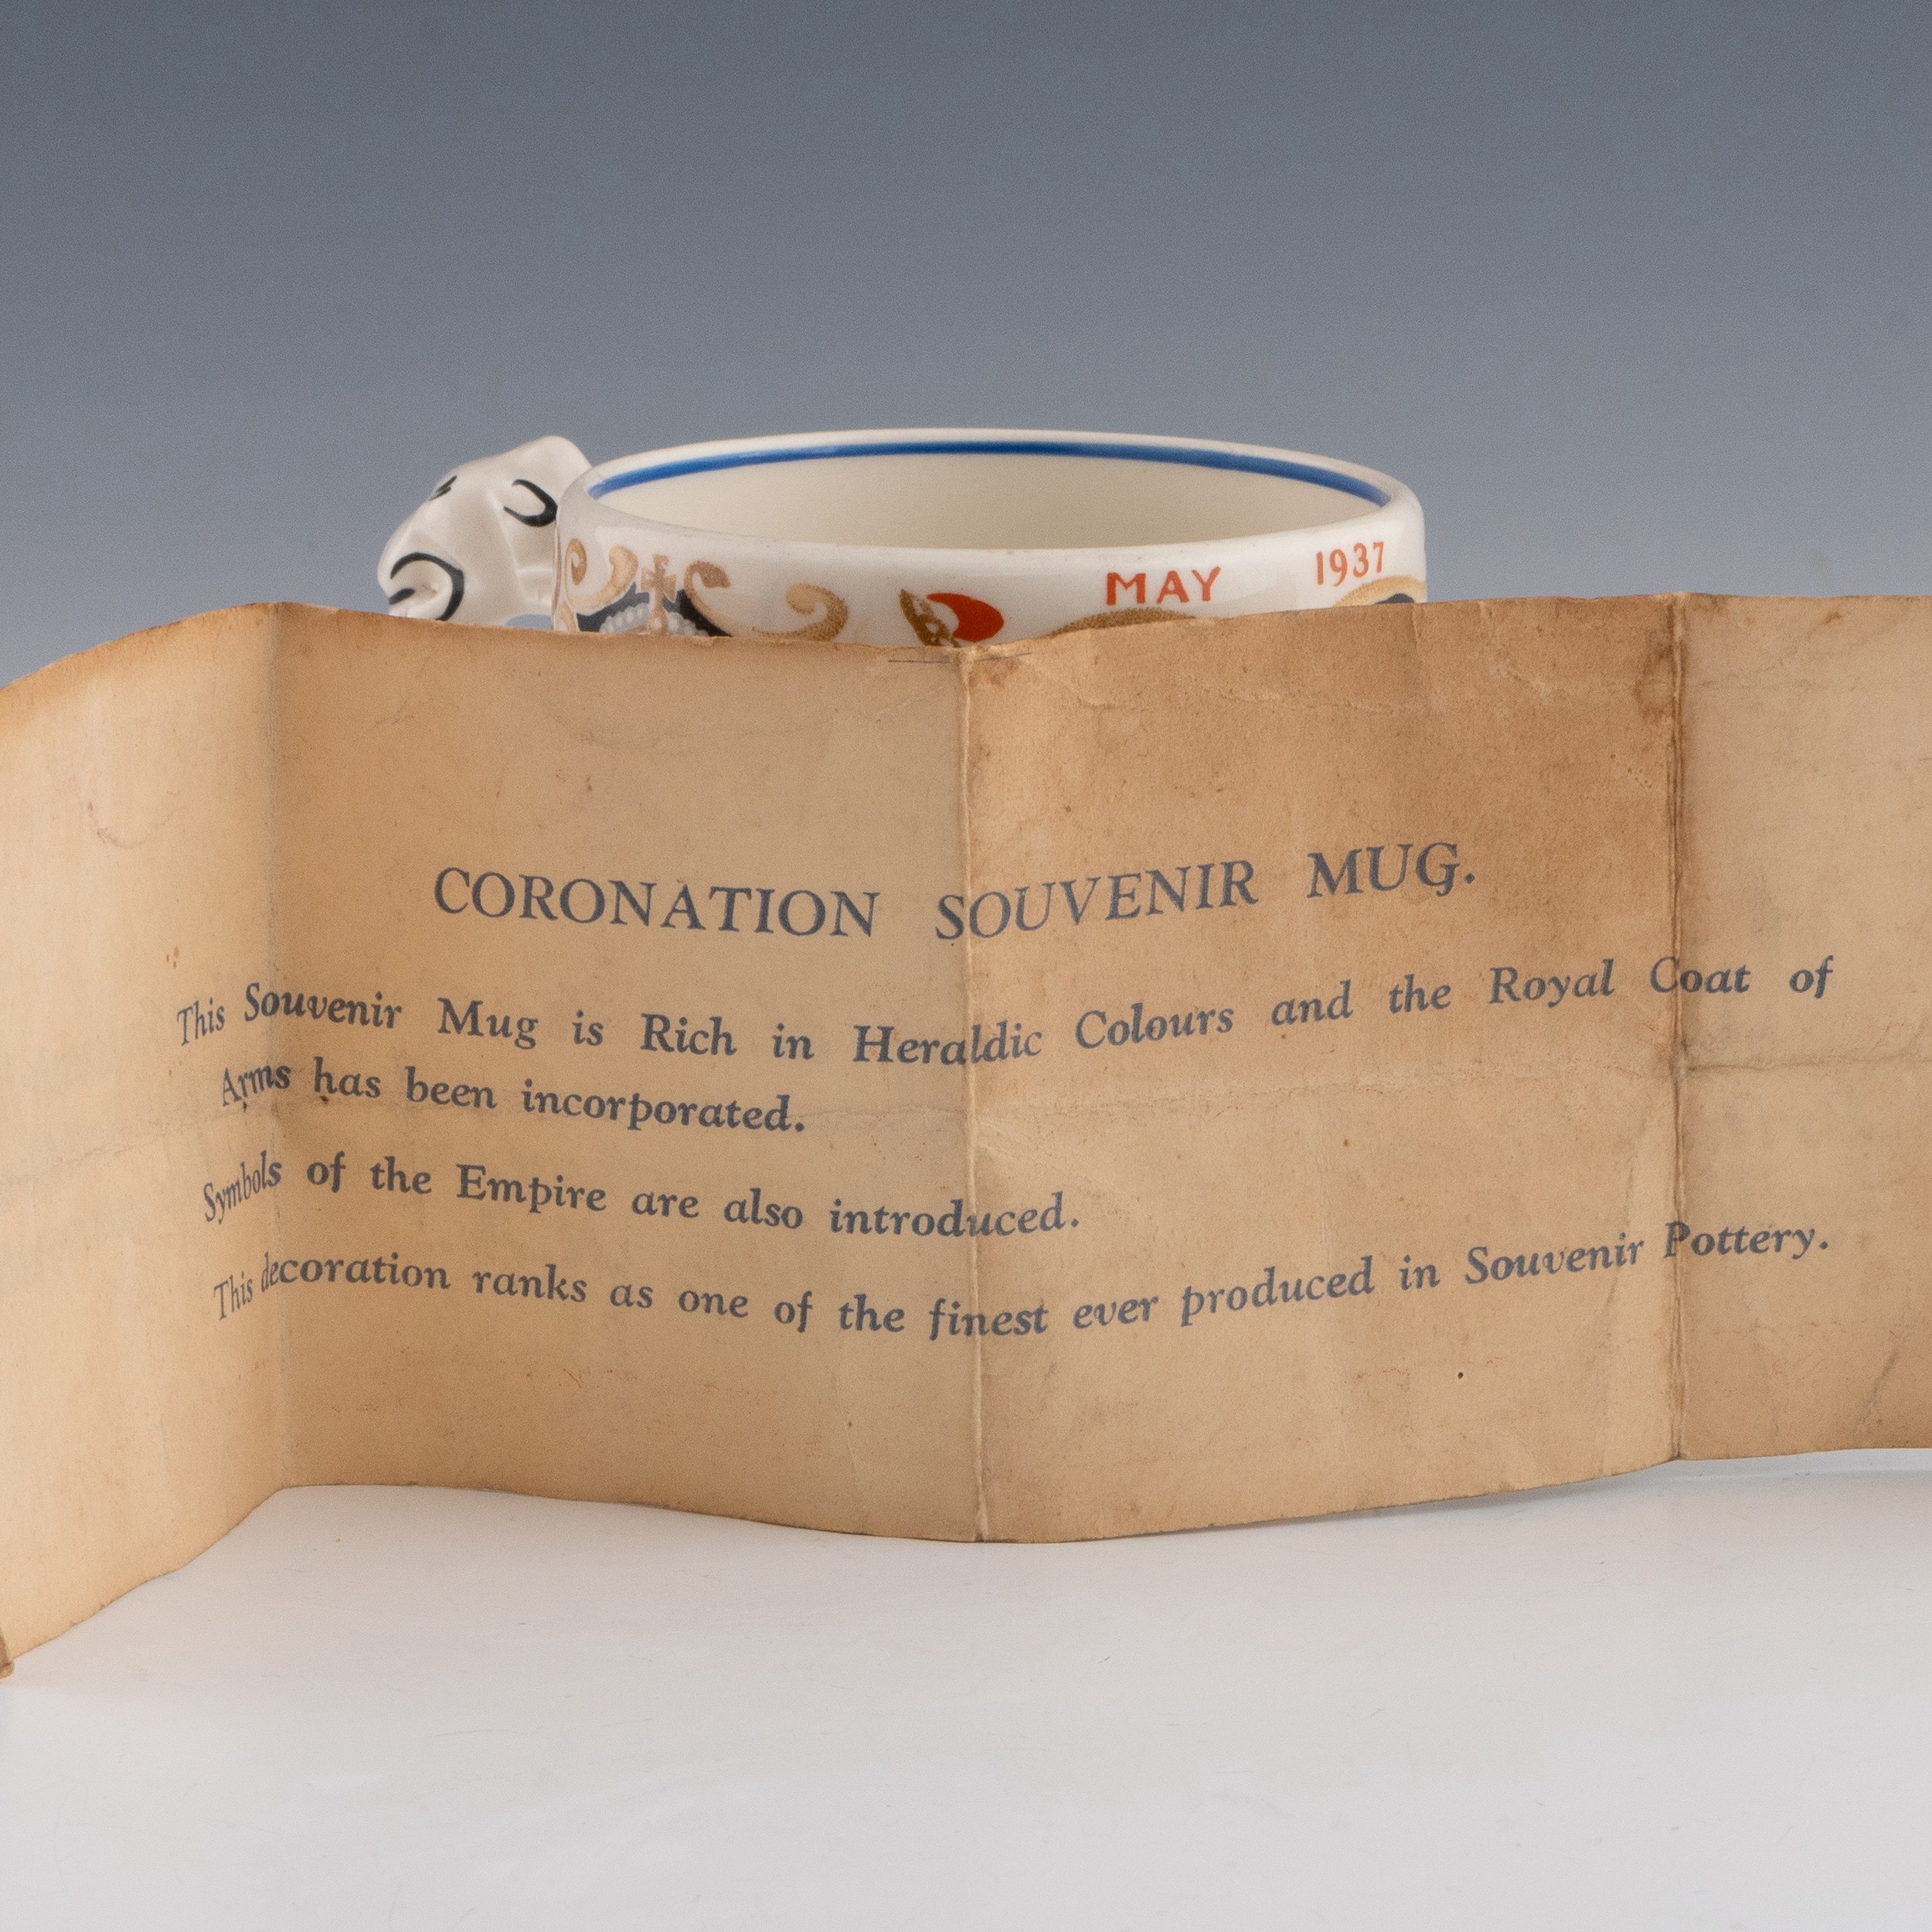 MAY 1937
CORONATION SOUVENIR MUG.
This Souvenir Mug is Rich in Heraldic Colours and the Royal Coat of
Arms has been incorporated.
Symbols of the Empire are also introduced.
This decoration ranks as one of the finest ever produced in Souvenir Pottery.